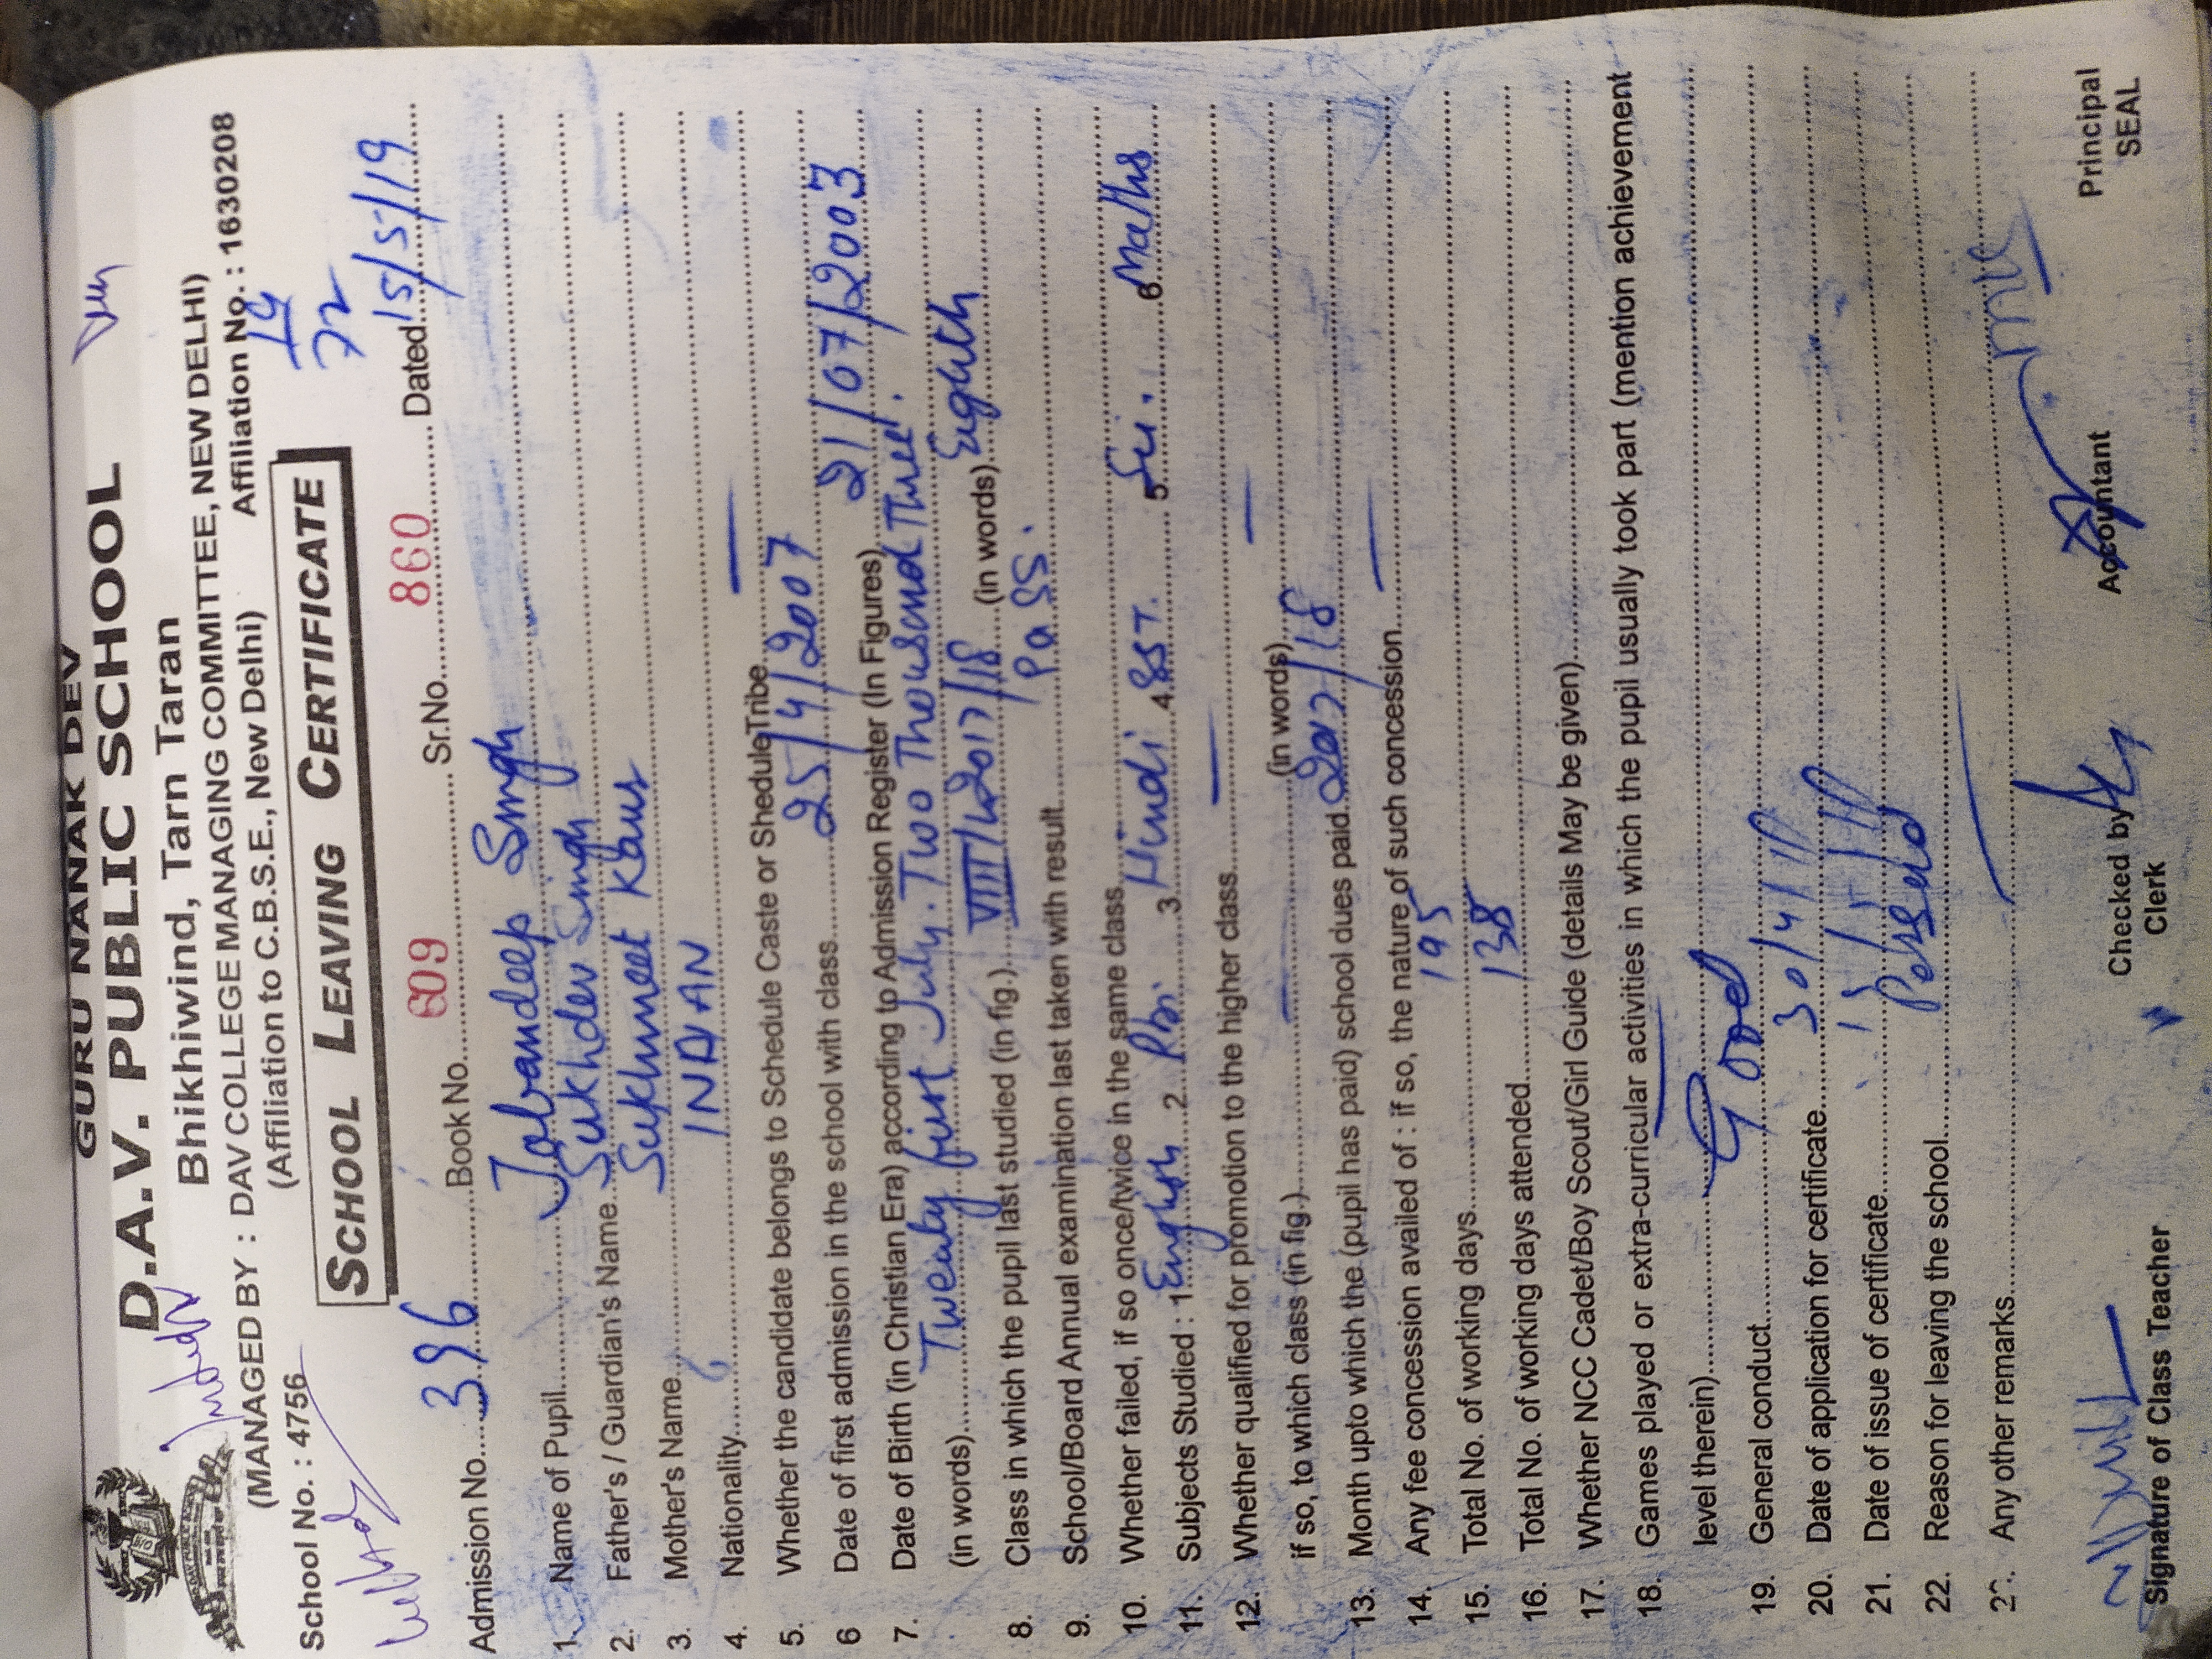 GURU NANAK DEV
D.A.V. PUBLIC SCHOOL
Bhikhiwind, Tarn Taran
(MANAGED BY : DAV COLLEGE MANAGING COMMITTEE, NEW DELHI)
School No. : 4756 (Affiliation to C.B.S.E., New Delhi) Affiliation No. : 1630208
SCHOOL LEAVING CERTIFICATE
19
72
Admission No. 396 Book No. 609 Sr.No. 860 Dated 15/5/19
1. Name of Pupil Jobandeep Singh
2. Father's / Guardian's Name Sukhdev Singh
3. Mother's Name Sukhmeet Kaur
4. Nationality INDIAN
5. Whether the candidate belongs to Schedule Caste or SheduleTribe —
6 Date of first admission in the school with class 25/4/2007
7. Date of Birth (in Christian Era) according to Admission Register (In Figures) 21/07/2003
(in words) Twenty first July. Two Thousand Three.
8. Class in which the pupil last studied (in fig.) VIII/2017/18 (in words) Eighth
9. School/Board Annual examination last taken with result Pass.
10. Whether failed, if so once/twice in the same class
11. Subjects Studied : 1 English 2 Pbi 3 Hindi 4 SST. 5 Sci. 6 Maths
12. Whether qualified for promotion to the higher class — —
if so, to which class (in fig.) — (in words)
13. Month upto which the (pupil has paid) school dues paid 2017/18
14. Any fee concession availed of : if so, the nature of such concession —
15. Total No. of working days 195
16. Total No. of working days attended 138
17. Whether NCC Cadet/Boy Scout/Girl Guide (details May be given)
18. Games played or extra-curricular activities in which the pupil usually took part (mention achievement
level therein) —
19. General conduct Good
20. Date of application for certificate 30/4/
21. Date of issue of certificate
22. Reason for leaving the school
Any other remarks
Signature of Class Teacher Checked by Accountant Principal
Clerk SEAL